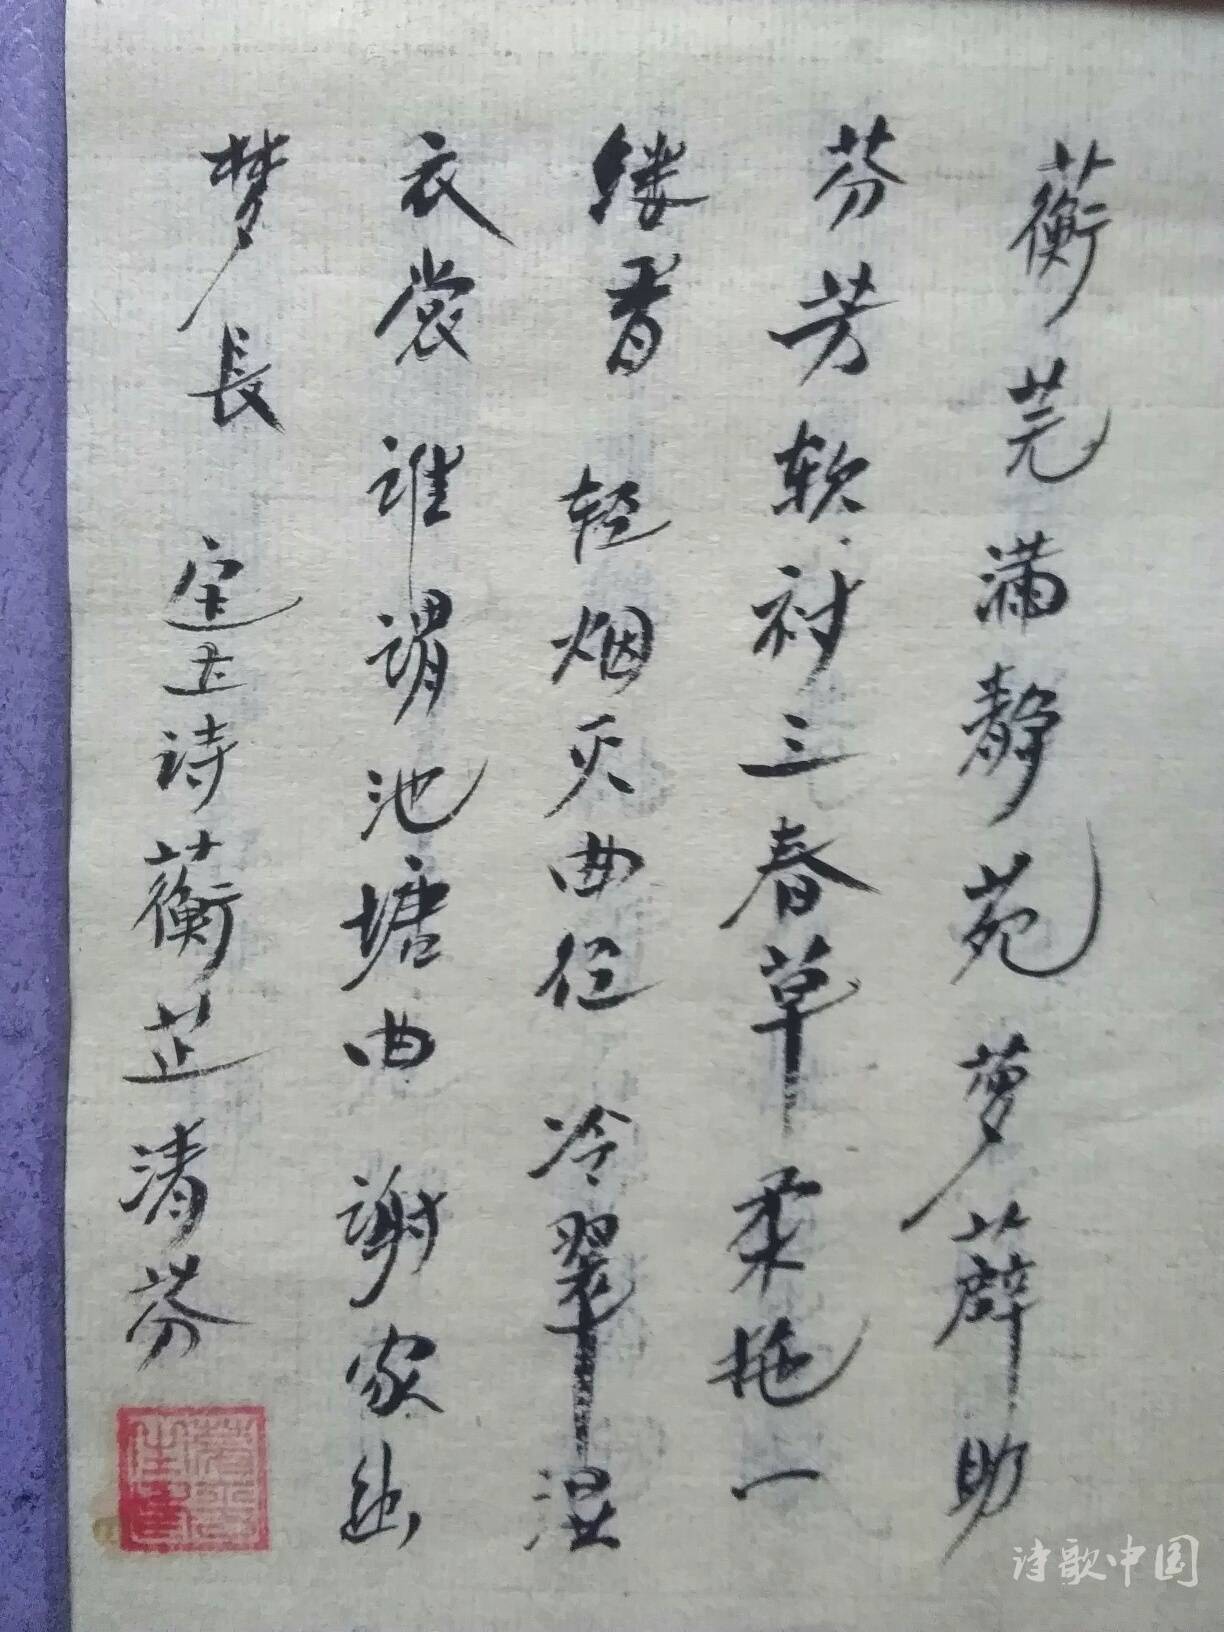 蘅芜满静苑 萝薜助
芬芳 软衬三春草 柔拖一
缕香 轻烟灭曲径 冷翠湿
衣裳 谁谓池塘曲 谢家幽
梦长 宝玉诗蘅芷清芬
诗歌中国